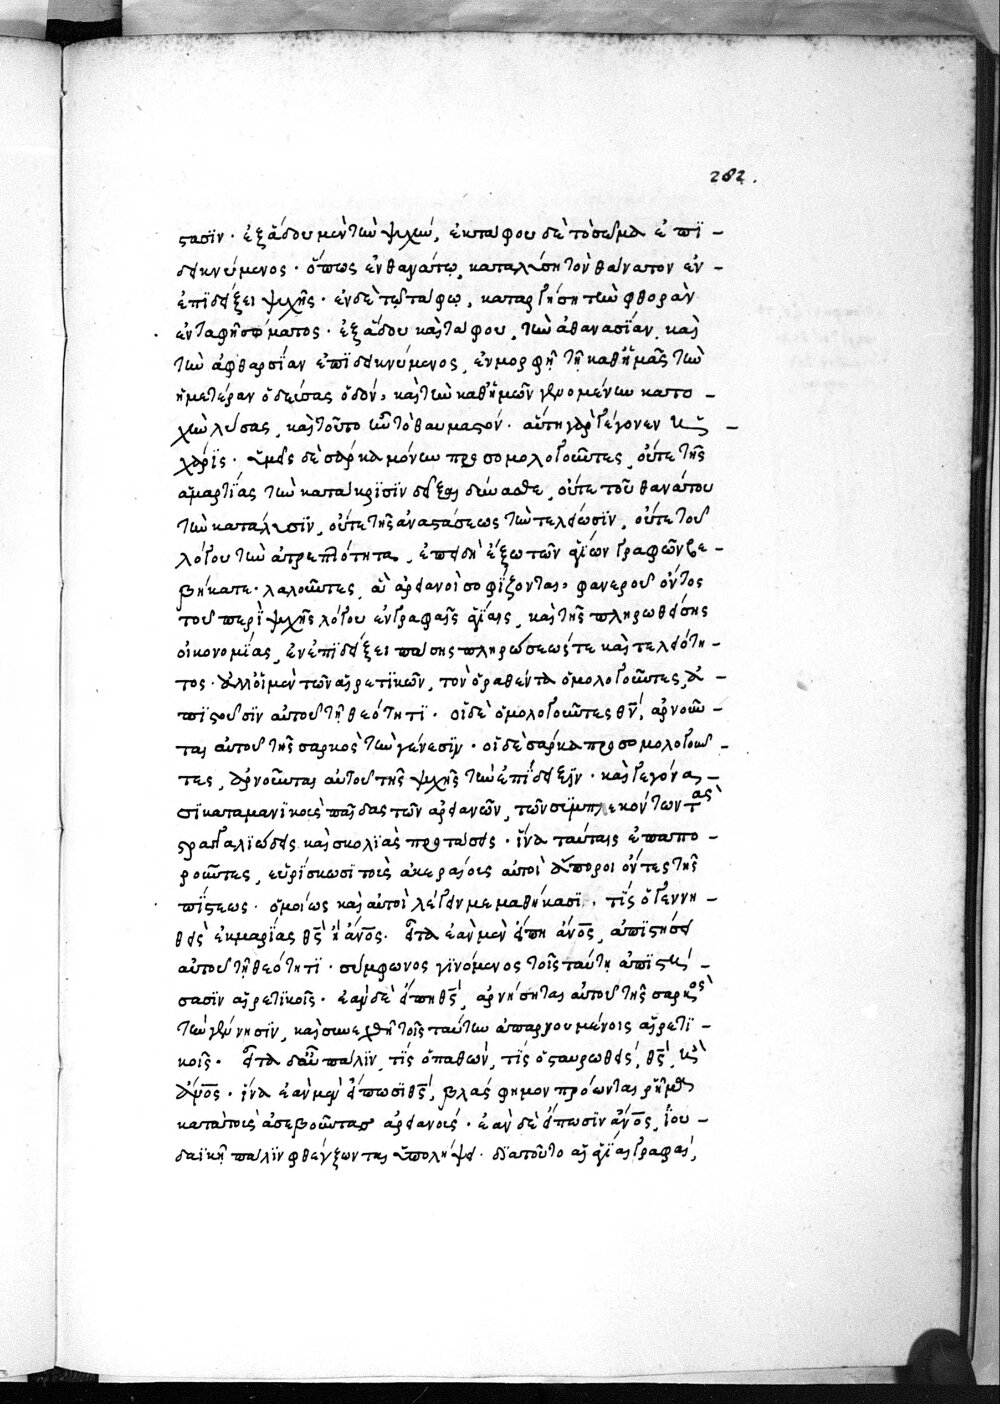 282.
στασϊν· ἐξ ἅδου μὲν τὴν ψυχὴν, ἐκ τάφου δὲ τὸ σῶμα ἐπϊ-
δεικνύμενος· ὅπως ἐν θανάτῳ, καταλύσῃ τὸν θάνατον ἐν
ἐπϊδείξει ψυχῆς· ἐν δὲ τῷ τάφῳ, καταργήσῃ τὴν φθορὰν
ἐν ταφῇ σώματος· ἐξ ἅδου καὶ τάφου, τὴν ἀθανασΐαν, καὶ
τὴν ἀφθαρσΐαν ἐπϊδεικνύμενος, ἐν μορφῇ τῇ καθ' ἡμᾶς τὴν
ἡμετέραν ὁδεύσας ὁδὸν, καὶ τὴν καθ' ἡμῶν γενομένην κατο-
χὴν λύσας, καὶ τοῦτο ἦν τὸ θαυμαστόν· αὕτη γὰρ γέγονεν ἡ
χάρϊς· ὑμεῖς δὲ σάρκα μόνην προσομολογοῦντες, οὔτε τῆς
ἁμαρτΐας τὴν κατάκρϊσϊν δεῖξαι δύνασθε, οὔτε τοῦ θανάτου
τὴν κατάλυσϊν, οὔτε τῆς ἀναστάσεως τὴν τελείωσϊν, οὔτε τοῦ
λόγου τὴν ἀτρεπτότητα, ἐπειδὴ ἔξω τῶν ἁγίων γραφῶν βε-
βήκατε· λαλοῦντες, ἃ ἀρειανοὶ σοφίζονται, φανεροῦ ὄντος
τοῦ περὶ ψυχῆς λόγου ἐν γραφαῖς ἁγΐαις, καὶ τῆς πληρωθείσης
οἰκονομΐας, ἐν ἐπϊδείξει πάσης πληρώσεώς τε καὶ τελειότη-
τος· ἀλλ' οἱ μὲν τῶν αἱρετϊκῶν, τὸν ὁραθέντα ὁμολογοῦντες, ἀ-
πϊστοῦσϊν αὐτοῦ τῇ θεότητϊ· οἱ δὲ ὁμολογοῦντες θν̅, ἀρνοῦν-
ται αὐτοῦ τῆς σαρκὸς τὴν γένεσϊν· οἱ δὲ σάρκα προσομολογοῦν-
τες, ἀρνοῦνται αὐτοῦ τῆς ψυχῆς τὴν ἐπΐδειξϊν· καὶ γεγόνα-
σϊ κατὰ μανϊκοὺς παῖδας τῶν ἀρειανῶν, τῶν συμπλεκόντων τὰς
στραγγαλϊώδεις καὶ σκολϊὰς προτάσεις· ἵνα ταύταις ἐπαπο-
ροῦντες, εὑρΐσκωσϊ τοὺς ἀκεραίους αὐτοὶ ἄποροι ὄντες τῆς
πΐστεως· ὁμοίως καὶ αὐτοὶ λέγειν μεμαθήκασϊ, τίς ὁ γεννη-
θεὶς ἐκ μαρΐας θς̅ ἢ ἄνος̅· εἶτα ἐὰν μὲν εἴπῃ ἄνος̅, ἀπϊστήσει
αὐτοῦ τῇ θεότητϊ· σύμφωνος γϊνόμενος τοῖς ταύτῃ ἀπϊστή-
σασϊν αἱρετϊκοῖς· ἐὰν δὲ εἴπῃ θς̅, ἀρνήσηται αὐτοῦ τῆς σαρκὸς
τὴν γέννησϊν, καὶ συνεχθῇ τοῖς ταύτην ἀπαρνουμένοις αἱρετϊ-
κοῖς· εἶτα δ' αὖ πάλϊν, τίς ὁ παθὼν, τίς ὁ σταυρωθεὶς, θς̅, ἢ
ἄνος̅· ἵνα ἐὰν μὲν εἴπωσϊ θς̅, βλάσφημον προώνται ῥῆμα
κατὰ τοὺς ἀσεβοῦντας ἀρειανούς· ἐὰν δὲ εἴπωσϊν ἄνος̅, ἰου-
δαϊκῇ πάλϊν φθέγξωνται ὑπολήψει· δϊὰ τοῦτο αἱ ἅγΐαι γραφαὶ,